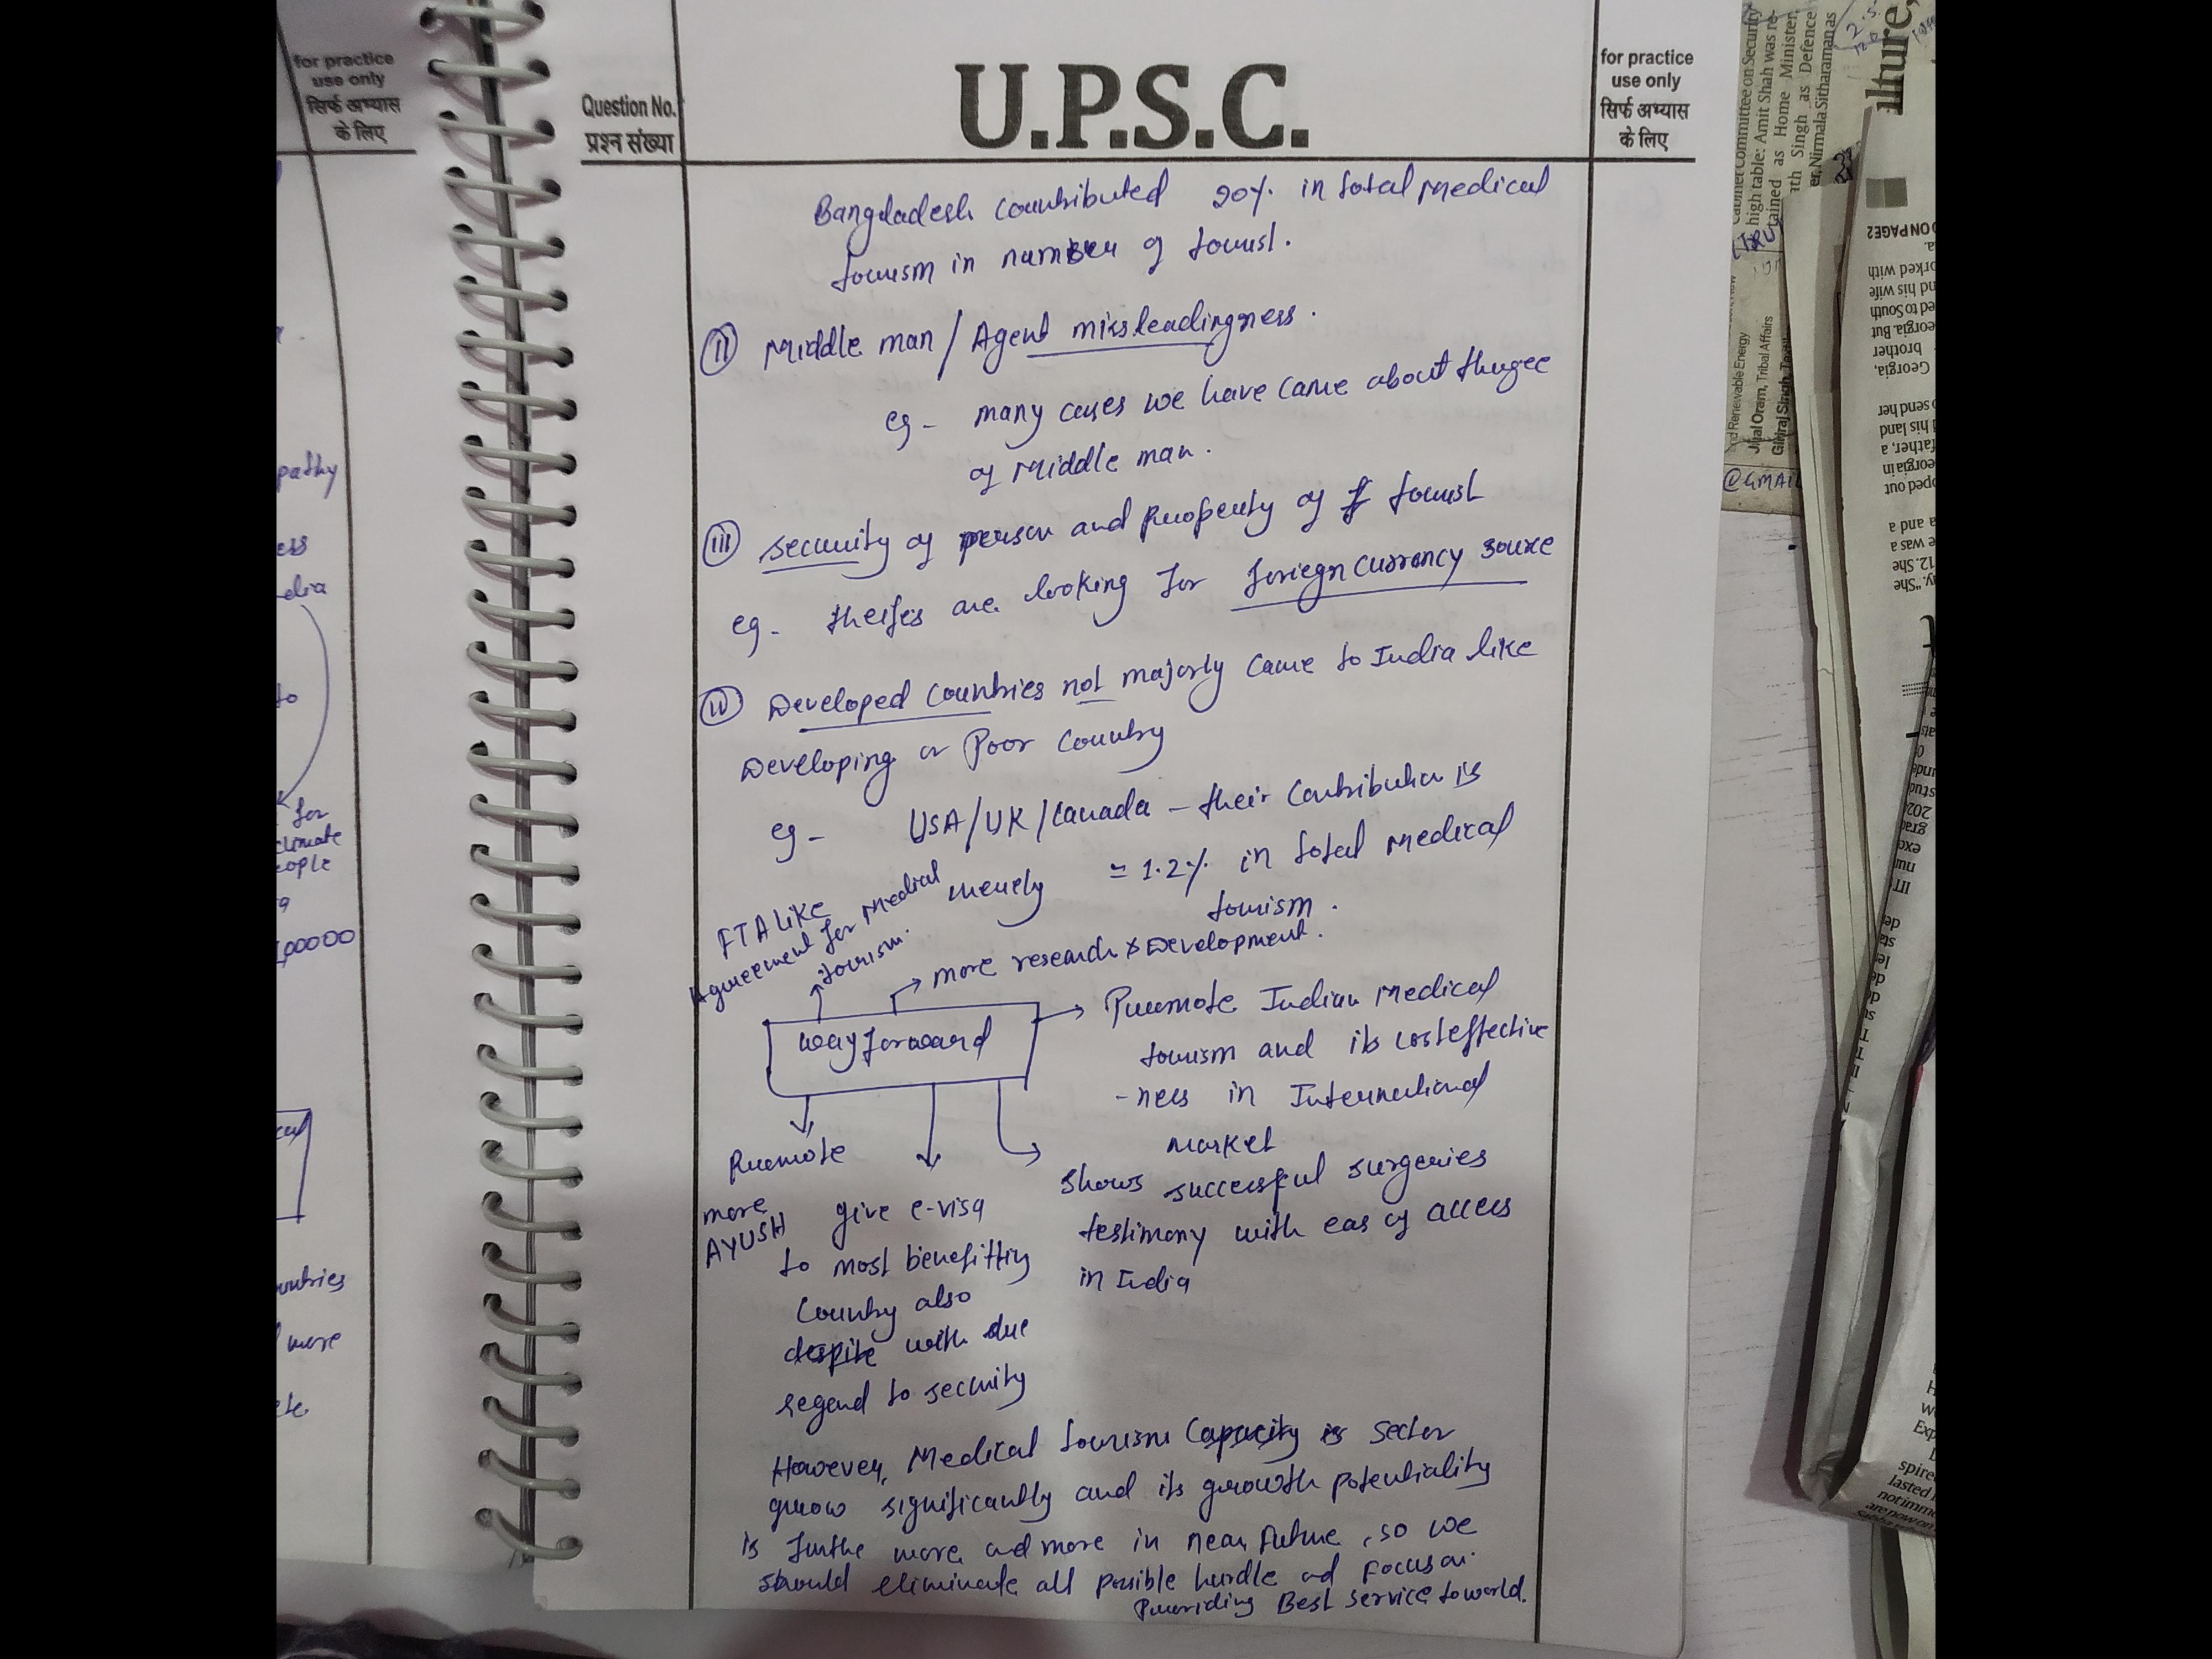 for practice
use only
सिर्फ अभ्यास
के लिए
pathy
ess
dia
to
for
climate
eople
00000
untries
more
Question No.
प्रश्न संख्या
U.P.S.C.
for practice
use only
सिर्फ अभ्यास
के लिए
Bangdadesh contributed 20% in total medical
tourism in number of tourist.
(ii) Middle man / Agent missleadingness.
eg - many cases we have came about thugee
of Middle man.
(iii) security of person and Property of tourist
eg - theifes are looking for foriegn currency source
Developed Countries not majorly came to India like
Developing or Poor Country
eg - USA/UK/Canada - their Contribution is
merely ≃ 1.2% in total medical
tourism.
FTA like
Agreement for Medial
tourism.
more research & Development.
way forward
Promote Indian Medical
tourism and its costeffective
-ness in International
market
Promote
more
AYUSH
give e-visa
to most benefitting
Country also
despite with due
regard to security
shows successful surgeries
testimony with eas of access
in India
However, Medical tourism Capacity is Sector
grow significantly and its growth potentiality
is furthe more and more in near future, so we
should eliminate all possible hurdle and Focus on
Providing Best service to world.
Cabinet Committee on Security
high table: Amit Shah was re-
tained as Home Minister,
Singh as Defence
Nirmala Sitharaman as
Renewable Energy
Oram, Tribal Affairs
@GMAIL
ON PAGE 2
orked with
nd his wife
ed to South
eorgia. But
brother
Georgia,
send her
his land
father, a
eorgia in
pped out
a and a
e was a
12. She
y." She
spire
lasted
not imm
are now on